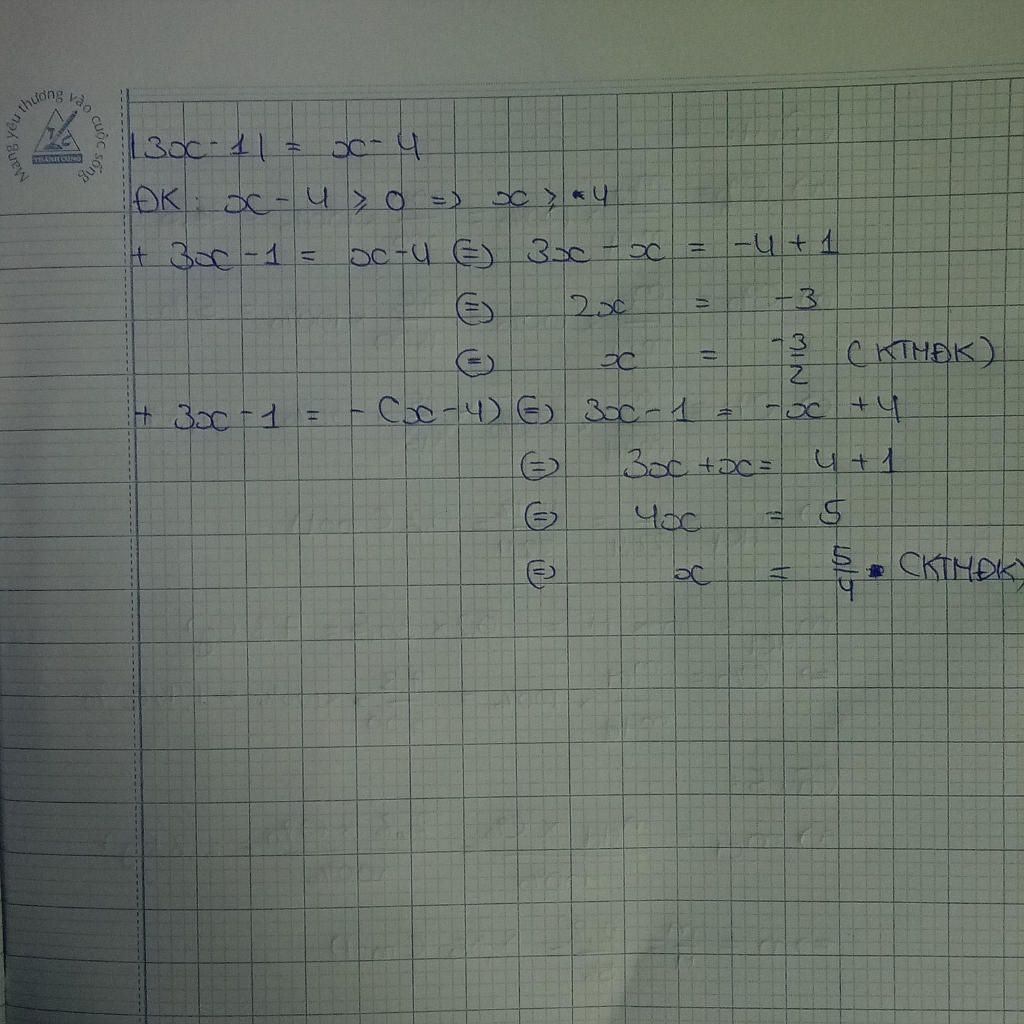 Mang yêu thương vào cuộc sống
THÀNH CÔNG
|3x - 1| = x - 4
ĐK : x - 4 ⩾ 0 => x ⩾ 4
+ 3x - 1 = x - 4 (=) 3x - x = -4 + 1
(=) 2x = -3
(=) x = -3/2 (KTMĐK)
+ 3x - 1 = -(x - 4) (=) 3x - 1 = -x + 4
(=) 3x + x = 4 + 1
(=) 4x = 5
(=) x = 5/4 (KTMĐK)